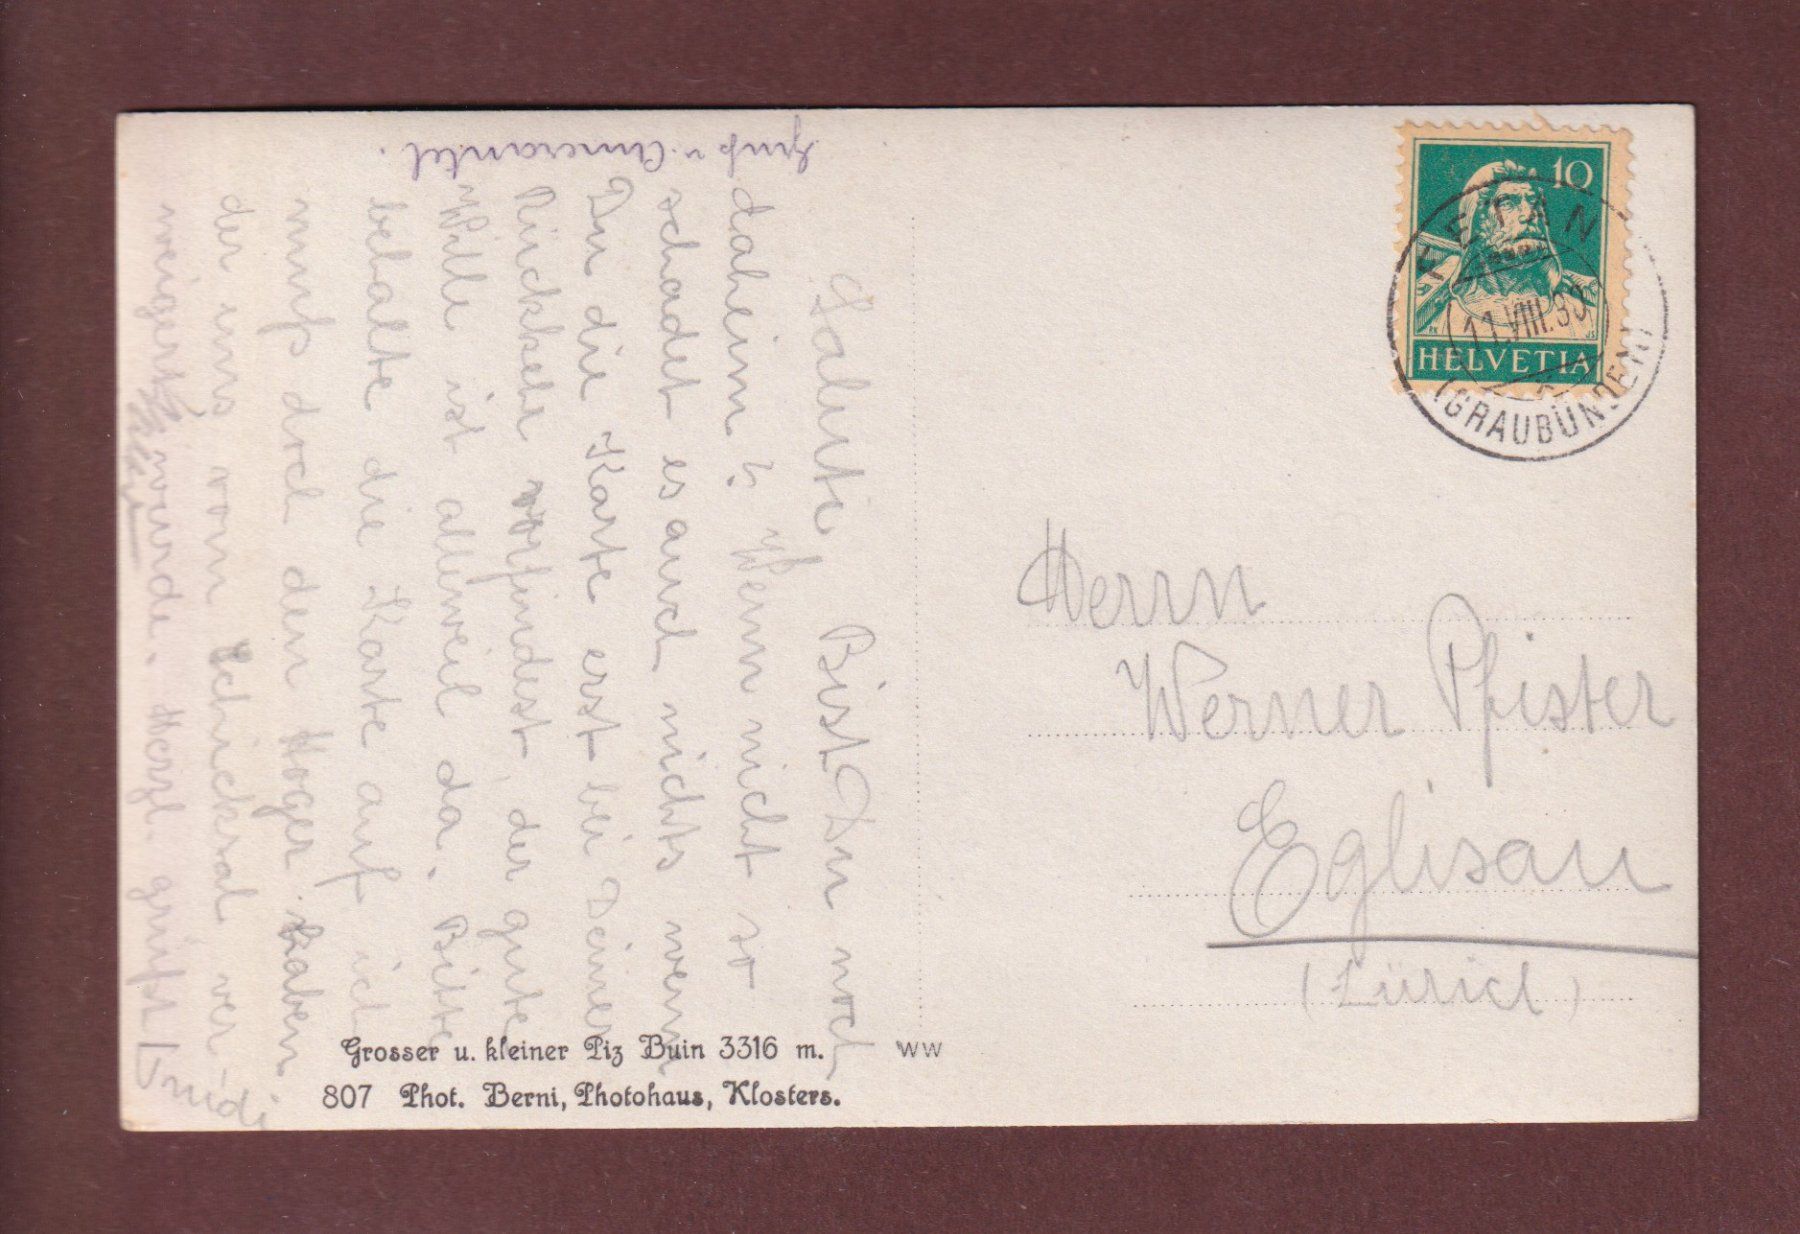 Salute Bist Du noch
daheim? Wenn nicht so
schadet es auch nichts wenn
Du die Karte erst bei Deiner
Rückkehr vorfindest, der gute
Wille ist allweil da. Bitte
behalte die Karte auf ich
muss doch den Hoger haben
der uns vom Schicksal ver-
weigert wurde. Herzl. grüsst
Gruss v.
10
HELVETIA
FETAN
11.VIII.30
(GRAUBÜNDEN)
Herrn
Werner Pfister
Eglisau
(Zürich)
Grosser u. kleiner Piz Buin 3316 m.
WW
807 Phot. Berni, Photohaus, Klosters.